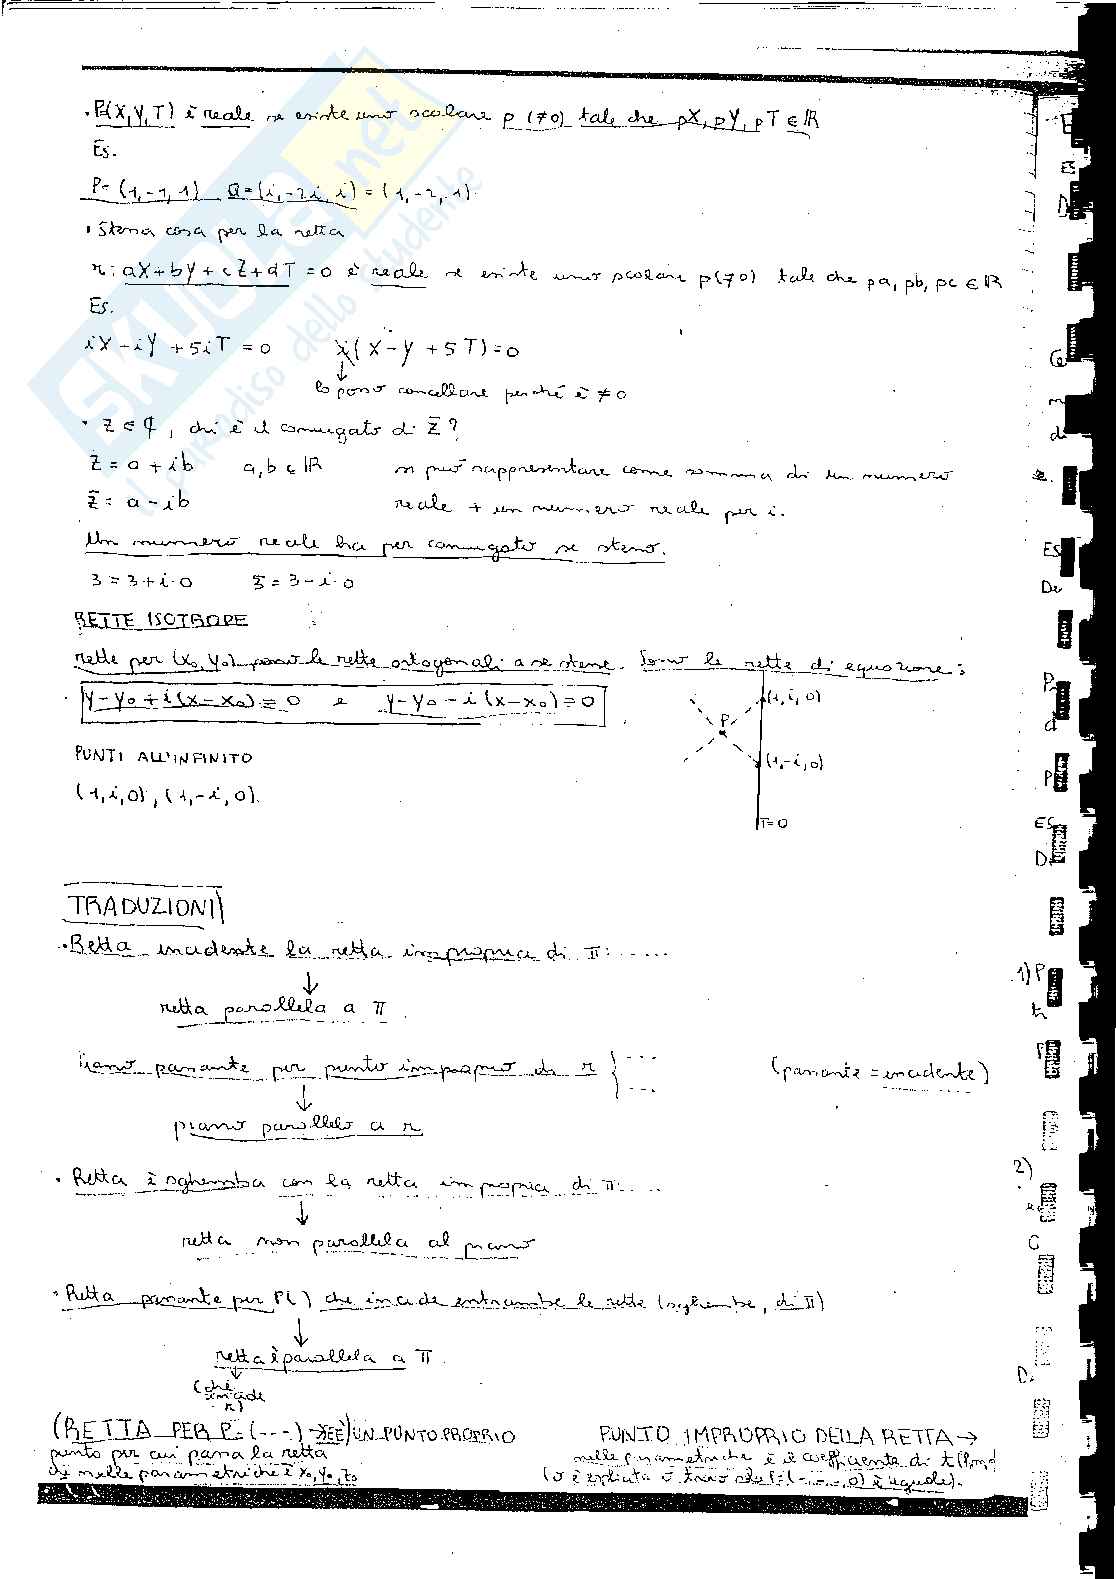 • P(X,Y,T) è reale se esiste uno scalare p (≠0) tale che pX, pY, pT ∈ ℝ
Es.
P=(1,-1,1) Q=(i,-2i,i)=(1,-2,1).
• Stessa cosa per la retta
r: aX+bY+cZ+dT=0 è reale se esiste uno scalare p(≠0) tale che pa, pb, pc ∈ ℝ
Es.
iX-iY+5iT=0 i(X-Y+5T)=0
↓
lo posso cancellare perché è ≠0
• Z∈ℂ, chi è il coniugato di Z̄?
Z=a+ib a,b∈ℝ si può rappresentare come somma di un numero
Z̄=a-ib reale + un numero reale per i.
Un numero reale ha per coniugato se stesso.
3=3+i·0 3̄=3-i·0
RETTE ISOTROPE
rette per (x₀,y₀) sono le rette ortogonali a se stesse. Sono le rette di equazione:
y-y₀+i(x-x₀)=0 e y-y₀-i(x-x₀)=0
(1,i,0)
P
(1,-i,0)
T=0
PUNTI ALL'INFINITO
(1,i,0), (1,-i,0).
TRADUZIONI
• Retta incidente la retta impropria di π: .....
↓
retta parallela a π
Piano passante per punto improprio di r { ... ... (passante = incidente)
↓
piano parallelo a r
• Retta è sghemba con la retta impropria di π: ....
↓
retta non parallela al piano
• Retta passante per P( ) che incide entrambe le rette (sghembe, di π)
↓
retta è parallela a π
↓
(che incide r)
(RETTA PER P=(---) È) UN PUNTO PROPRIO
punto per cui passa la retta
nelle parametriche è x₀,y₀,z₀
PUNTO IMPROPRIO DELLA RETTA →
nelle parametriche è il coefficiente di t
skuola.net
il paradiso dello studente